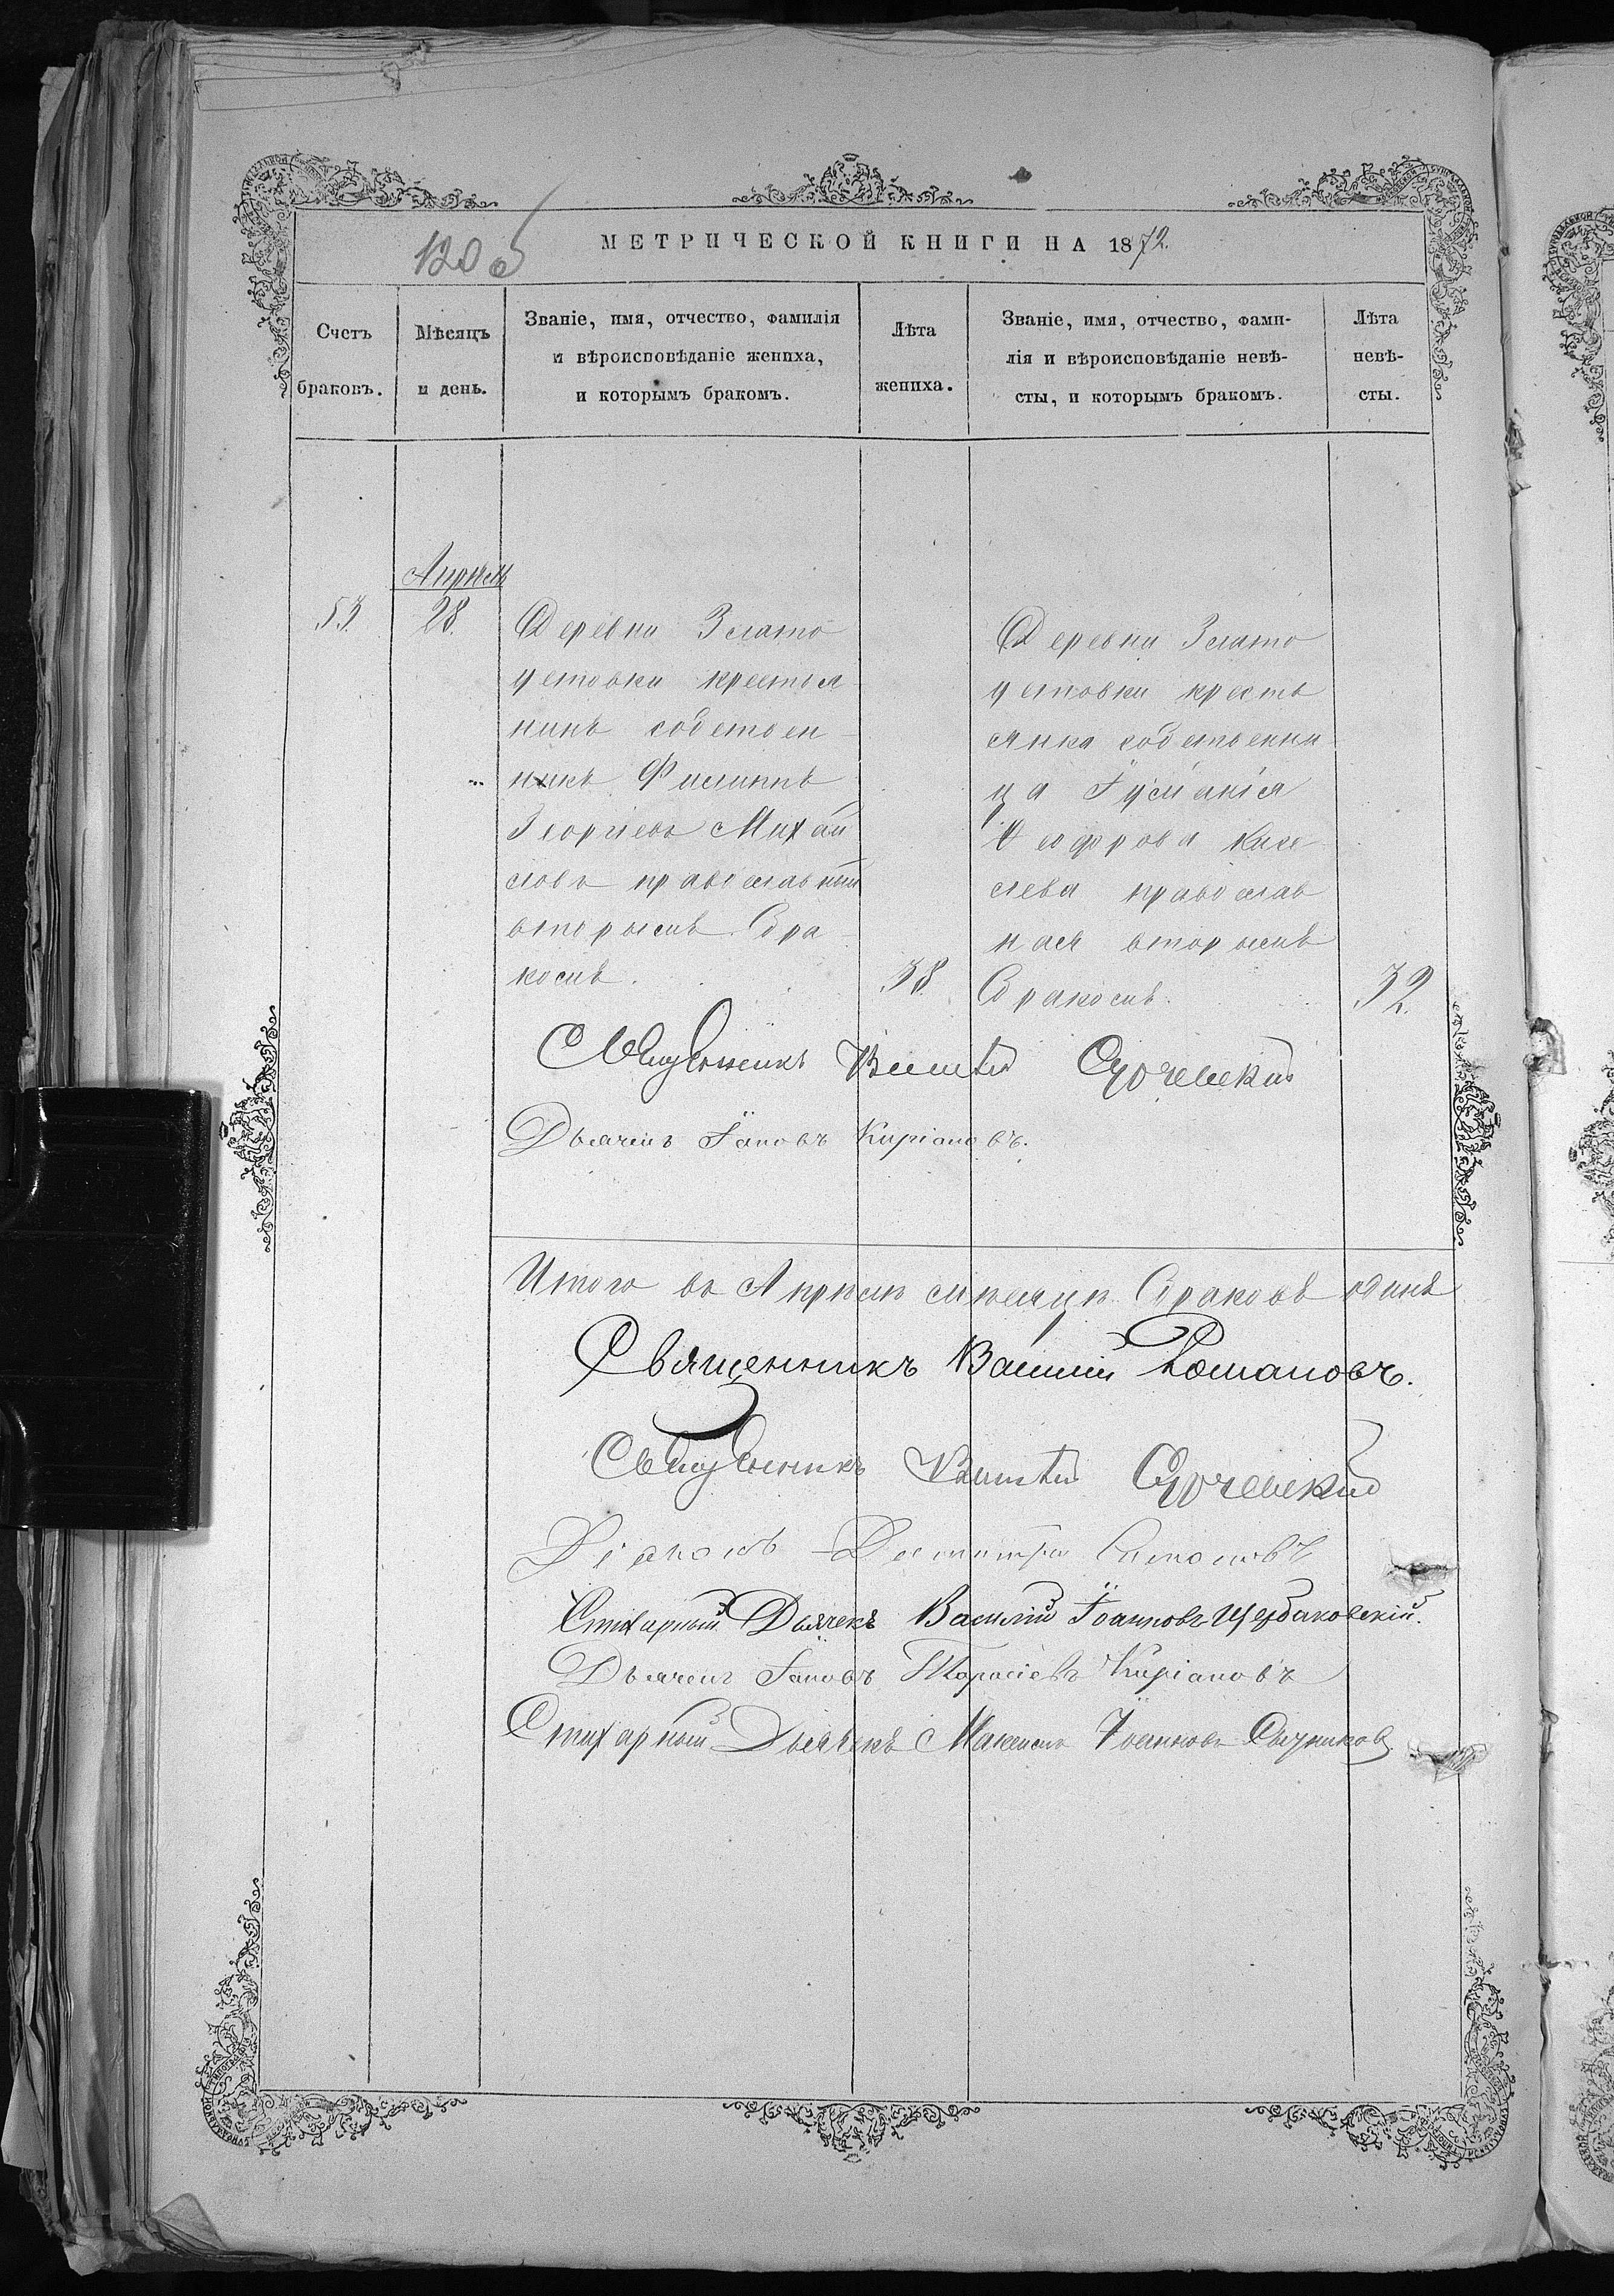 120 об
МЕТРИЧЕСКОЙ КНИГИ НА 1872.
Счетъ браковъ.
Мѣсяцъ и день.
Званіе, имя, отчество, фамилія
и вѣроисповѣданіе жениха,
и которымъ бракомъ.
Лѣта жениха.
Званіе, имя, отчество, фами-
лія и вѣроисповѣданіе невѣ-
сты, и которымъ бракомъ.
Лѣта невѣ-
сты.
Апрѣль
53. 28.
Деревни Злато
устовки крестья
нинъ собствен
никъ Филиппъ
Георгіевъ Михай
ловъ православный
вторымъ бра
комъ.
38
Деревни Злато
устовки кресть
янка собственни
ца Іуліанія
Феодорова Кисе
лева православ
ная вторымъ
бракомъ.
32.
Священникъ
Дьячекъ Іаковъ Киріановъ.
Итого въ Апрѣлѣ мѣсяцѣ браковъ одинъ
Священникъ Василій Романовъ.
Священникъ
Діаконъ Димитрій
Стихарный Дьячекъ Василій Іоанновъ Щербаковскій.
Дьячекъ Іаковъ Тарасіевъ Киріановъ
Стихарный Дьячекъ Максимъ Іоанновъ